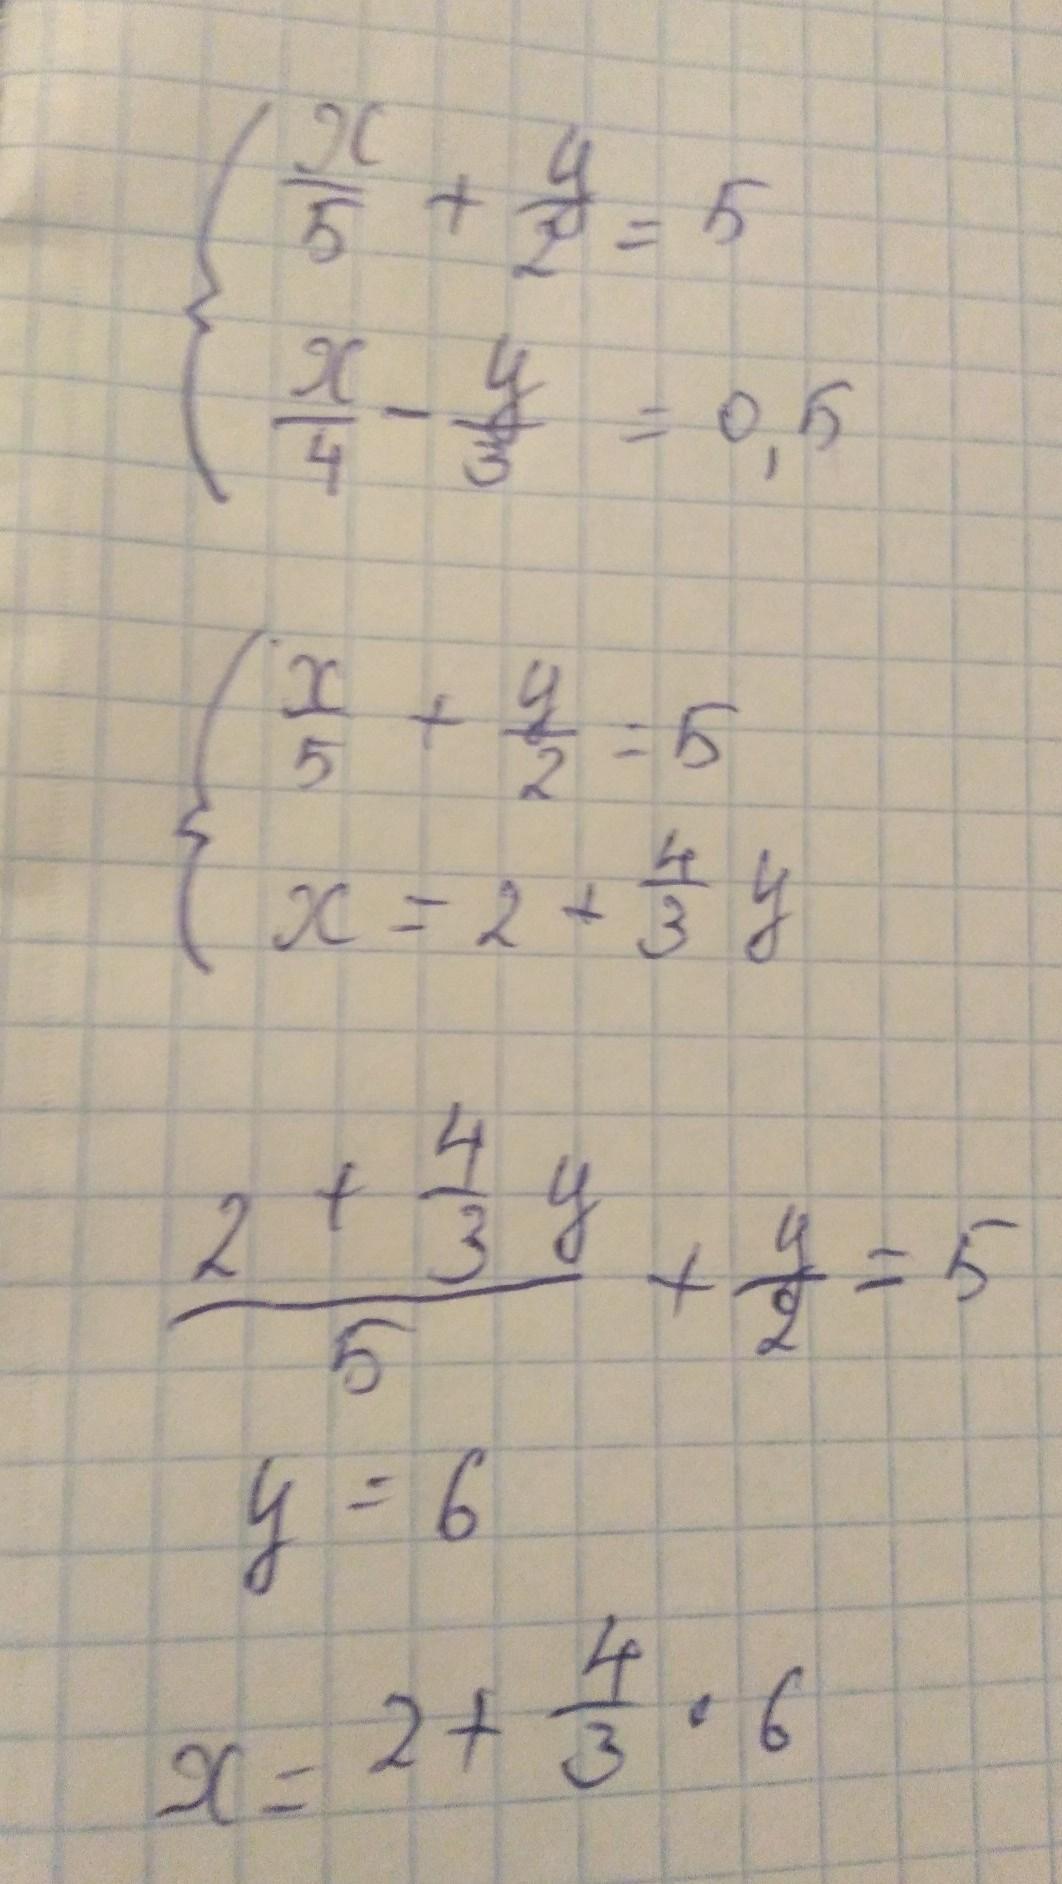 x/5 + y/2 = 5
x/4 - y/3 = 0,5
x/5 + y/2 = 5
x = 2 + 4/3 y
(2 + 4/3 y)/5 + y/2 = 5
y = 6
x = 2 + 4/3 · 6